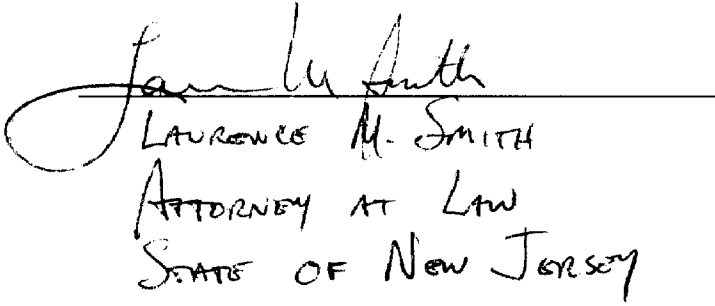 Laurence M Smith
LAURENCE M. SMITH
ATTORNEY AT LAW
STATE OF NEW JERSEY